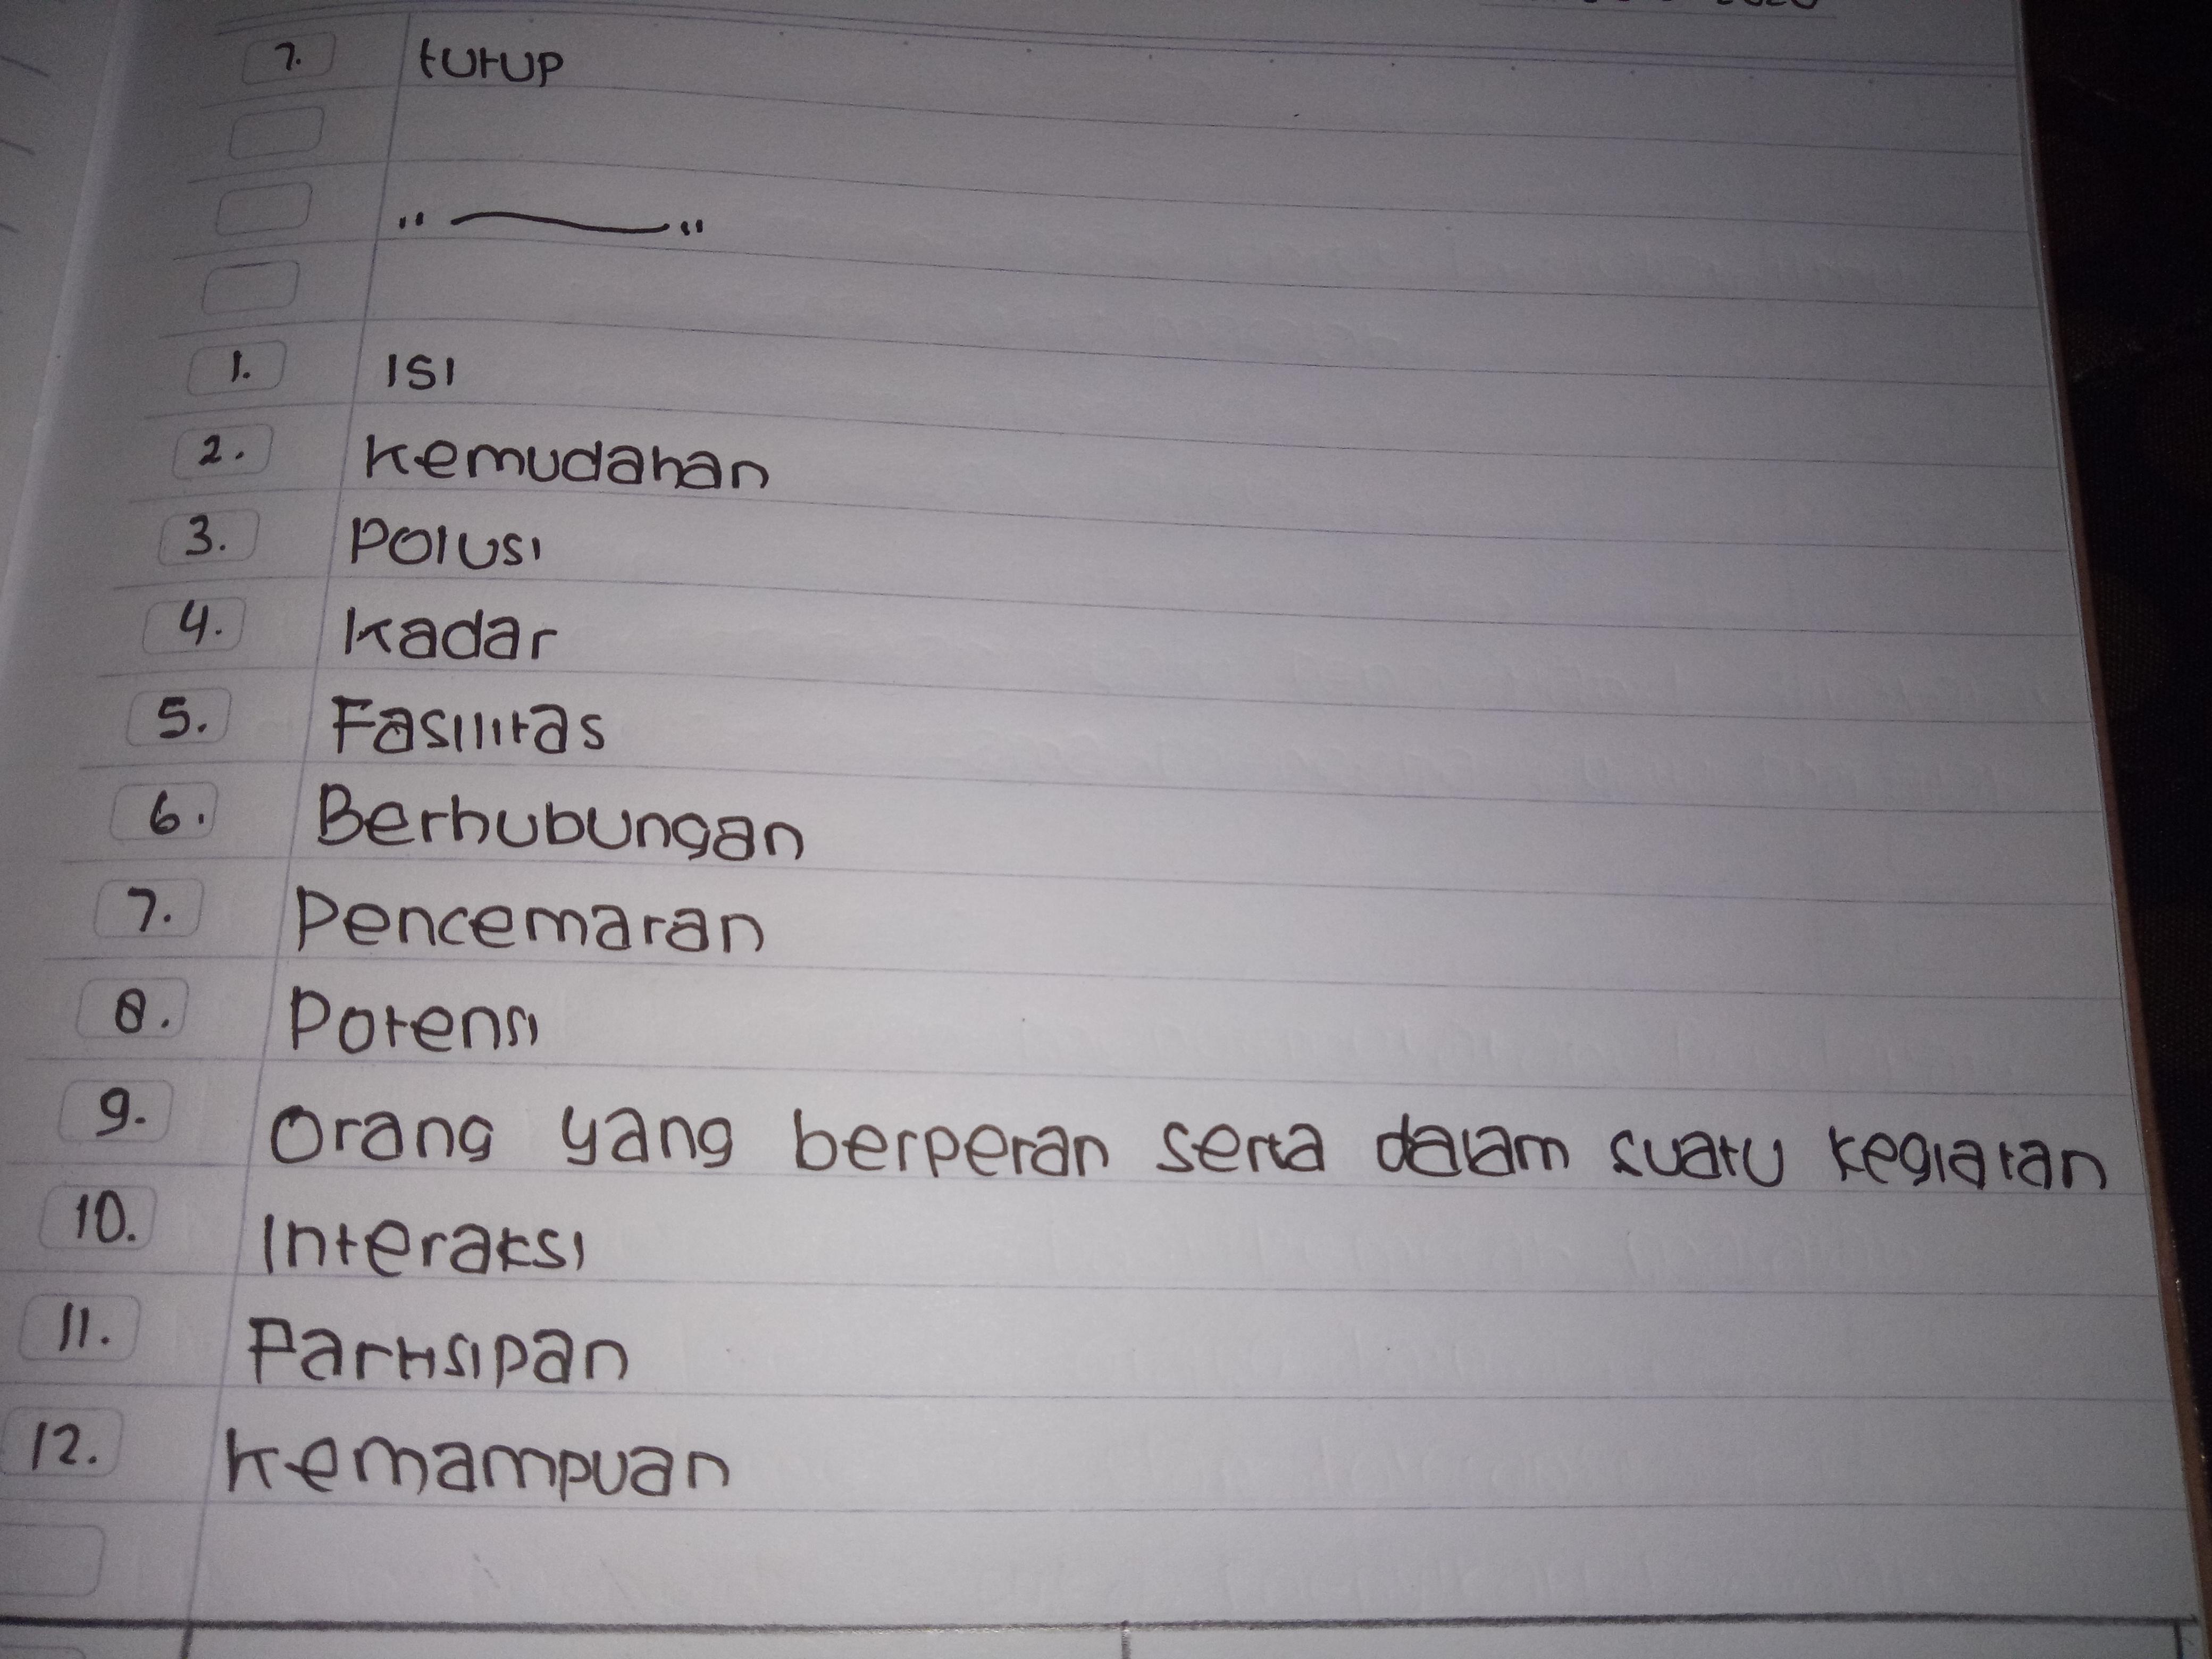 7. tutup
" ——— "
1. ISI
2. Kemudahan
3. Polusi
4. Kadar
5. Fasilitas
6. Berhubungan
7. Pencemaran
8. Potensi
9. Orang yang berperan serta dalam suatu kegiatan
10. Interaksi
11. Partisipan
12. Kemampuan